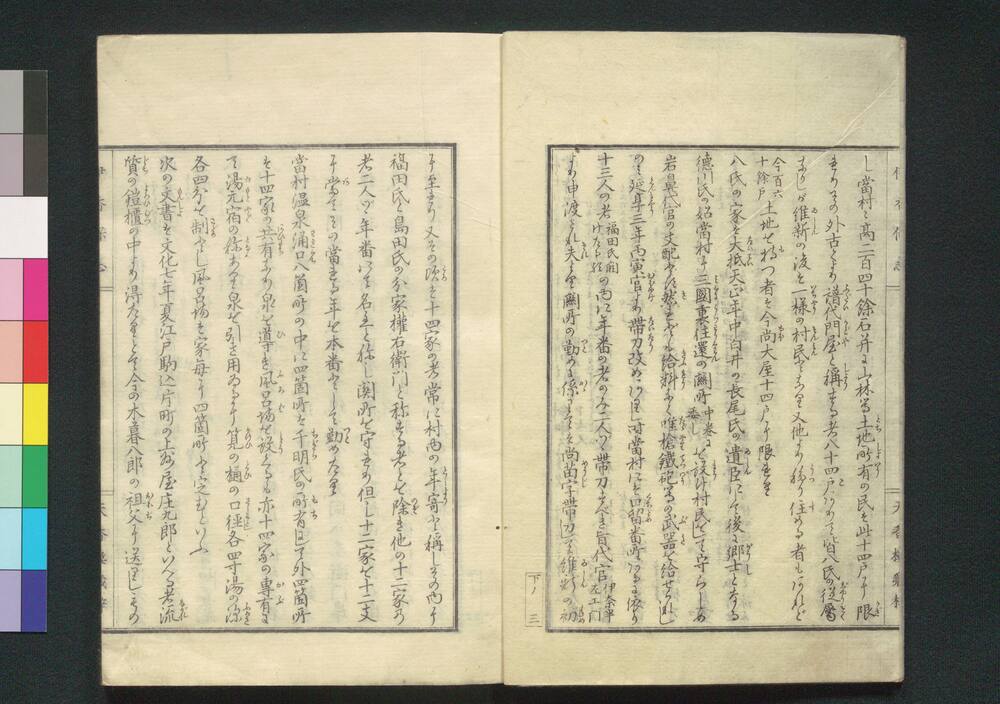 し當村の高二百四十餘石并に山林等土地所有の民も此十四戸に限
きりその外古くより譜代門屋と稱する者八十四戸ありて皆八氏の從屬
なりしが維新の後も一樣の村民となり又他より移り住める者もあれど
今百六十餘戸土地を持つ者は今尚大屋十四戸に限れり
八氏の家も大抵天正年中白井の長尾氏の遺臣にて後に郷士となる
德川氏の始當村に三國裏往還の關所中巻に委しを設け村民をして守らしめ
岩鼻代官の支配なれども給料なく唯槍鐵砲等の武器を給せられし
のミ延享三年丙寅官より帶刀改めあり同時當村にも口留番所あるに依り
十三人の者福田氏の内に年番の者のみ二人づゝ帶刀すべき旨代官伊奈半左エ門
より申渡され夫より關所の勤に係りても尚苗字帶刀して維新の初
に至れり又その頃は十四家の者常に村内の年寄と稱しその内に
福田氏と島田氏の分家權右衛門と称する者とを除き他の十二家の
者二人づゝ年番にて名主と称し關所を守れり但し十二家を十二支
に當てその當れる年を本番として勤めたり
當村温泉涌口八箇所の中に四箇所は千明氏の所有にして外四箇所
は十四家の共有なり泉を導き風呂場を設くるも亦十四家の專有に
て湯元宿の称あり泉を引き用ゐるに筧の樋の口徑各四寸湯の深
各四分を制とし風呂場も家毎に四箇所と定むといふ
次の文書は文化七年夏江戸駒込片町の上州屋庄九郎といへる者流
質の鎧櫃の中より得たりとて今の木暮八郎の祖父に送りしもの
下ノ 三